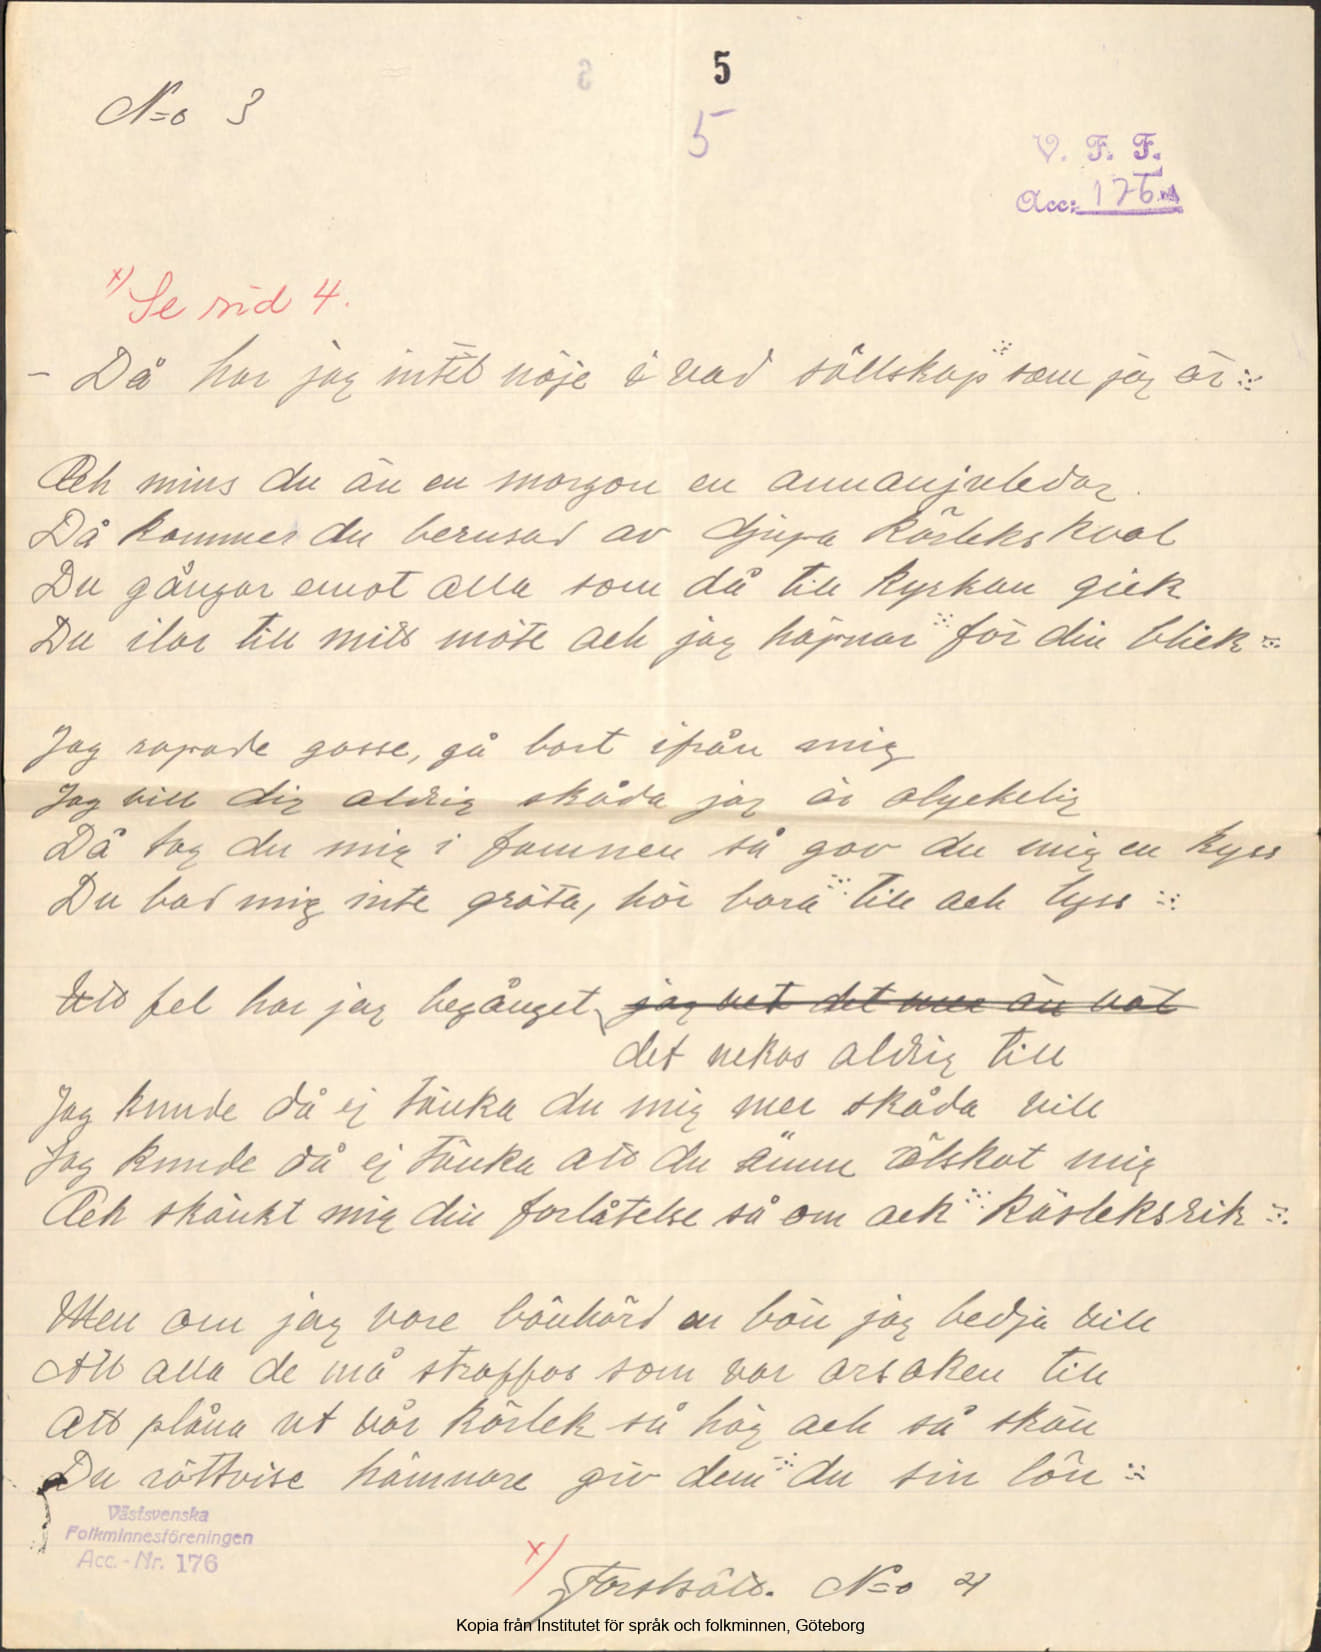 5
N=o 3
5
V. F. F.
Acc: 176
x/ Se sid 4.
– Då har jag intet nöje i vad sällskap ⁝ som jag är ⁝
Och mins du än en morgon en annanjuledag.
Då kommer du berusad av djupa kärlekskval
Du gångar emot alla som då till kyrkan gick
Du ilar till mitt möte och jag häpnar ⁝ för din blick ⁝
Jag ropade gosse, gå bort ifrån mig
Jag vill dig aldrig skåda jag är olyckelig
Då tog du mig i famnen så gav du mig en kyss
Du bad mig inte gråta, hör bara ⁝ till och tyss ⁝
Ett fel har jag begånget, jag vet det mer än väl
det nekas aldrig till
Jag kunde då ej tänka du mig mer skåda vill
Jag kunde då ej tänka att du ännu älskat mig
Och skänkt mig din förlåtelse så om och ⁝ kärleksrik ⁝
Men om jag vore bönhörd en bön jag bedja vill
Att alla de må straffas som var orsaken till
Att plåna ut vår kärlek så hög och så skön
Du rättvise hämnare giv dem ⁝ du sin lön ⁝
Västsvenska
Folkminnesföreningen
Acc.-Nr. 176
x/ Fortsätt. N=o 4
Kopia från Institutet för språk och folkminnen, Göteborg